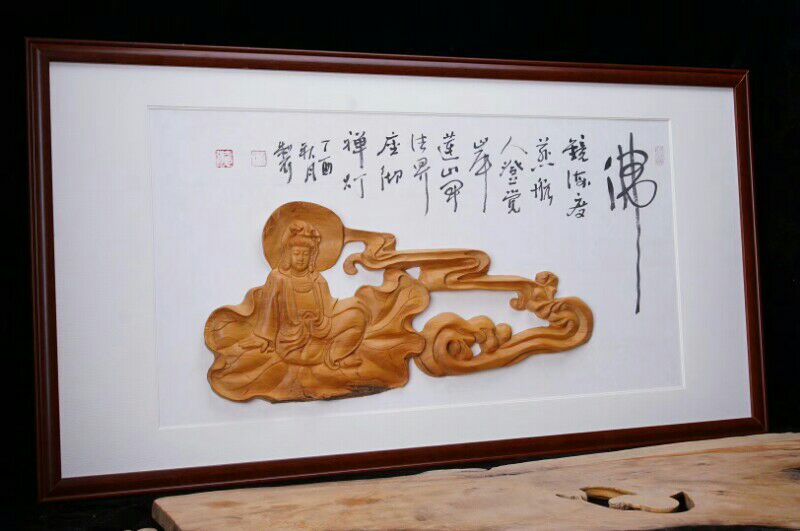 佛
镜海度
慈航
人登觉
岸
莲山
法界
座
禅灯
丁酉
秋月